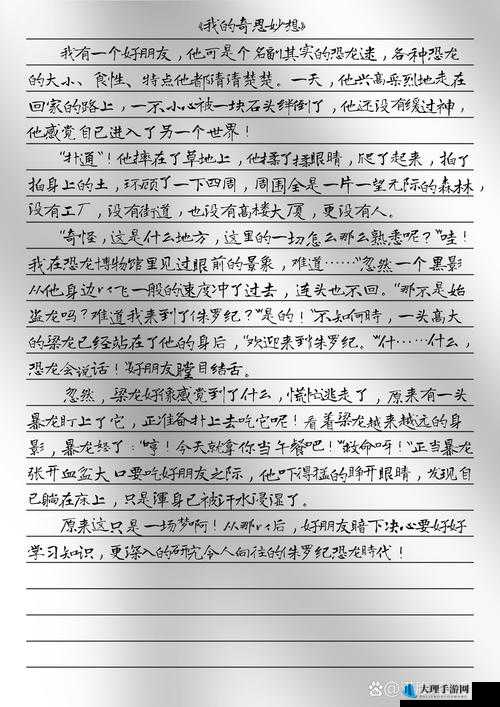 《我的奇思妙想》
我有一个好朋友，他可是个名副其实的恐龙迷，各种恐龙
的大小、食性、特点他都清清楚楚。一天，他兴高采烈地走在
回家的路上，一不小心被一块石头绊倒了，他还没有缓过神，
他感觉自己进入了另一个世界！
“扑通”！他摔在了草地上，他揉了揉眼睛，爬了起来，拍了
拍身上的土，环顾了一下四周，周围全是一片一望无际的森林，
没有工厂，没有街道，也没有高楼大厦，更没有人。
“奇怪，这是什么地方，这里的一切怎么那么熟悉呢？”哇！
我在恐龙博物馆里见过眼前的景象，难道……“忽然一个黑影
从他身边以飞一般的速度冲了过去，连头也不回。“那不是始
盗龙吗？难道我来到了侏罗纪？”是的！“不知何時，一头高大
的梁龙已经站在了他的身后，“欢迎来到侏罗纪。”什……什么，
恐龙会说话！“好朋友瞠目结舌。
忽然，梁龙好像感觉到了什么，慌忙逃走了，原来有一头
暴龙盯上了它，正准备扑上去吃它呢！看着梁龙越来越远的身
影，暴龙怒了：“哼！今天就拿你当午餐吧！”“救命呀！”正当暴龙
张开血盆大口要吃好朋友之际，他吓得猛的睁开眼睛，发现自
己躺在床上，只是渾身已被汗水浸湿了。
原来这只是一场梦啊！从那以后，好朋友暗下决心要好好
学习知识，更深入的研究令人向往的侏罗纪恐龙時代！
大理手游网